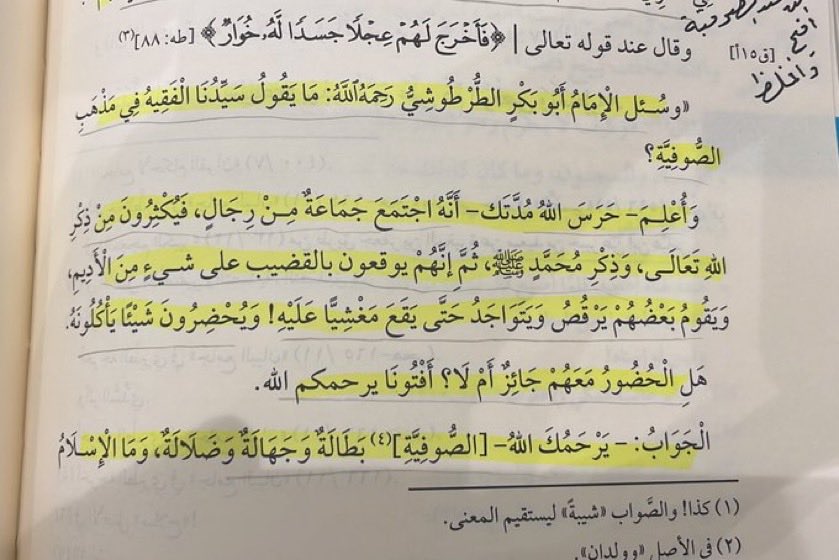 وقال عند قوله تعالى | ﴿فَأَخْرَجَ لَهُمْ عِجْلًا جَسَدًا لَّهُ خُوَارٌ﴾ [طه: ٨٨](٣)
[ق١٥أ]
«وسُئل الإِمَامُ أَبُو بَكْرٍ الطُّرْطُوشِيُّ رَحِمَهُ اللَّهُ: مَا يَقُولُ سَيِّدُنَا الْفَقِيهُ فِي مَذْهَبِ
الصُّوفِيَّةِ؟
وَأُعْلِم- حَرَسَ اللهُ مُدَّتَك- أَنَّهُ اجْتَمَعَ جَمَاعَةٌ مِنْ رِجَالٍ، فَيُكْثِرُونَ مِنْ ذِكْرِ
اللهِ تَعَالَى، وَذِكْرِ مُحَمَّدٍ ﷺ، ثُمَّ إِنَّهُمْ يوقعون بالقضيب على شيءٍ مِنَ الْأَدِيمِ،
وَيَقُومُ بَعْضُهُمْ يَرْقُصُ وَيَتَوَاجَدُ حَتَّى يَقَعَ مَغْشِيًّا عَلَيْهِ! وَيُحْضِرُونَ شَيْئًا يَأْكُلُونَهُ.
هَلِ الْحُضُورُ مَعَهُمْ جَائِزٌ أَمْ لَا؟ أَفْتُونَا يرحمكم الله.
الْجَوَابُ: - يَرْحَمُكَ اللهُ- [الصُّوفِيَّةِ](٤) بَطَالَةٌ وَجَهَالَةٌ وَضَلَالَةٌ، وَمَا الْإِسْلَامُ
(١) كذا! والصَّواب «شيبةً» ليستقيم المعنى.
(٢) في الأصل «وولدان».